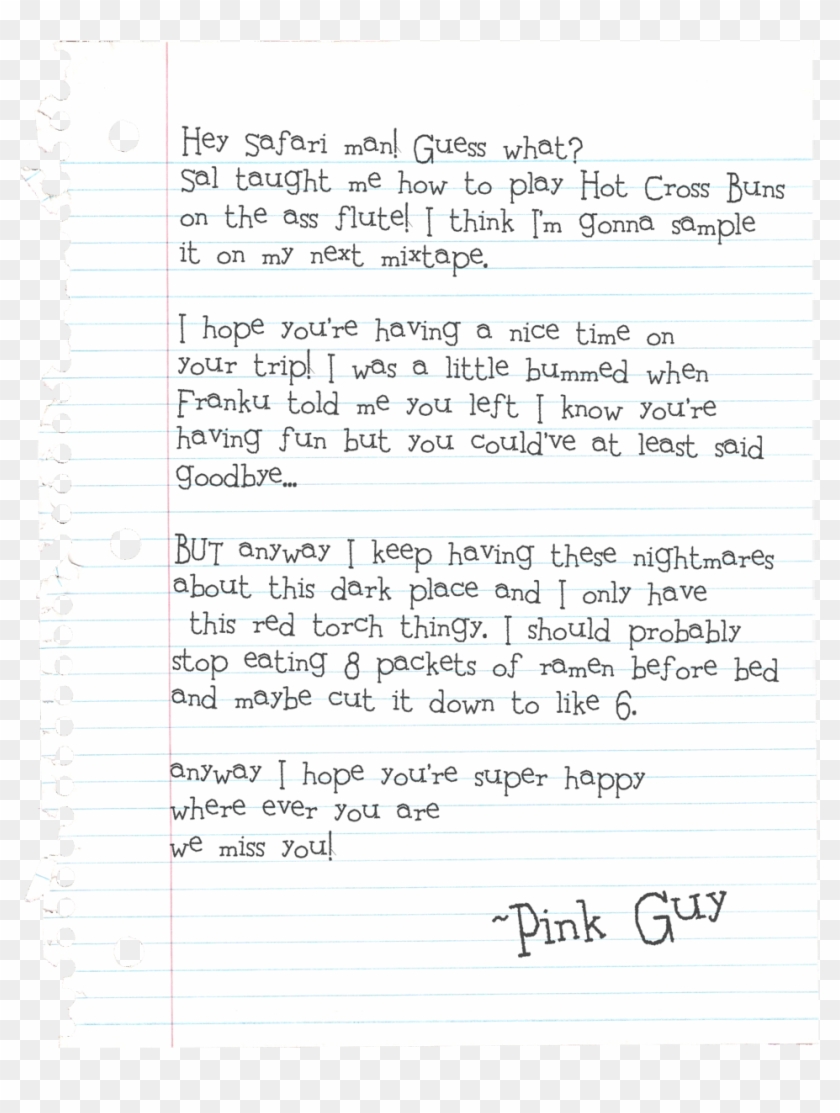 Hey Safari man! Guess what?
Sal taught me how to play Hot Cross Buns
on the ass flute! I think I'm gonna sample
it on my next mixtape.
I hope you're having a nice time on
your trip! I was a little bummed when
Franku told me you left I know you're
having fun but you could've at least said
goodbye...
BUT anyway I keep having these nightmares
about this dark place and I only have
this red torch thingy. I should probably
stop eating 8 packets of ramen before bed
and maybe cut it down to like 6.
anyway I hope you're super happy
where ever you are
we miss you!
~Pink Guy